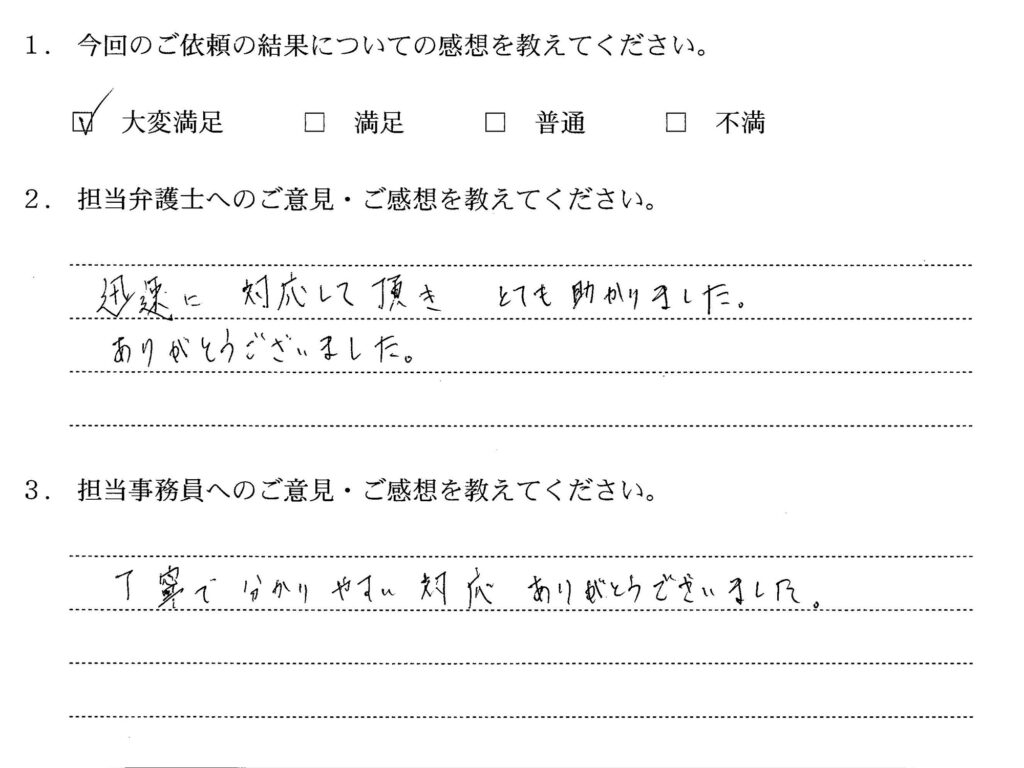 １．今回のご依頼の結果についての感想を教えてください。
☑ 大変満足 □ 満足 □ 普通 □ 不満
２．担当弁護士へのご意見・ご感想を教えてください。
迅速に 対応して頂き とても助かりました。
ありがとうございました。
３．担当事務員へのご意見・ご感想を教えてください。
丁寧で 分かりやすい 対応 ありがとうございました。